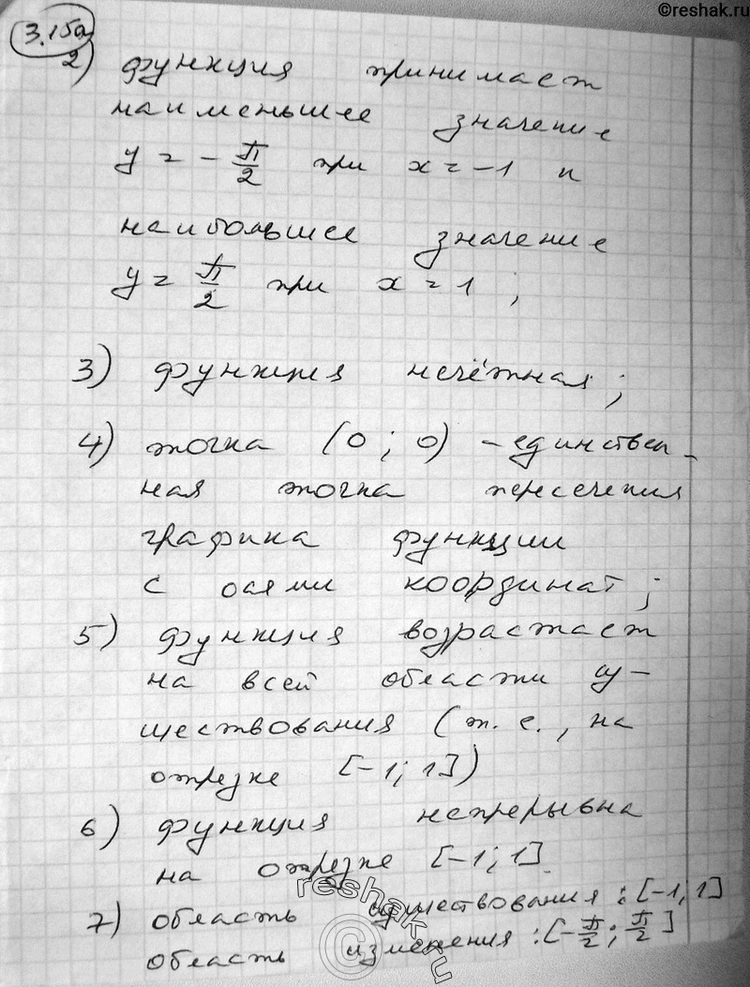 ©reshak.ru
3.15а
2) функция принимает
наименьшее значение
y = -π/2 при x = -1 и
наибольшее значение
y = π/2 при x = 1 ;
3) функция нечётная;
4) точка (0 ; 0) - единствен-
ная точка пересечения
графика функции
с осями координат;
5) функция возрастает
на всей области су-
ществования (т. е., на
отрезке [-1; 1])
6) функция непрерывна
на отрезке [-1; 1]
7) область существования : [-1; 1]
область изменения : [-π/2; π/2]
reshak.ru
©